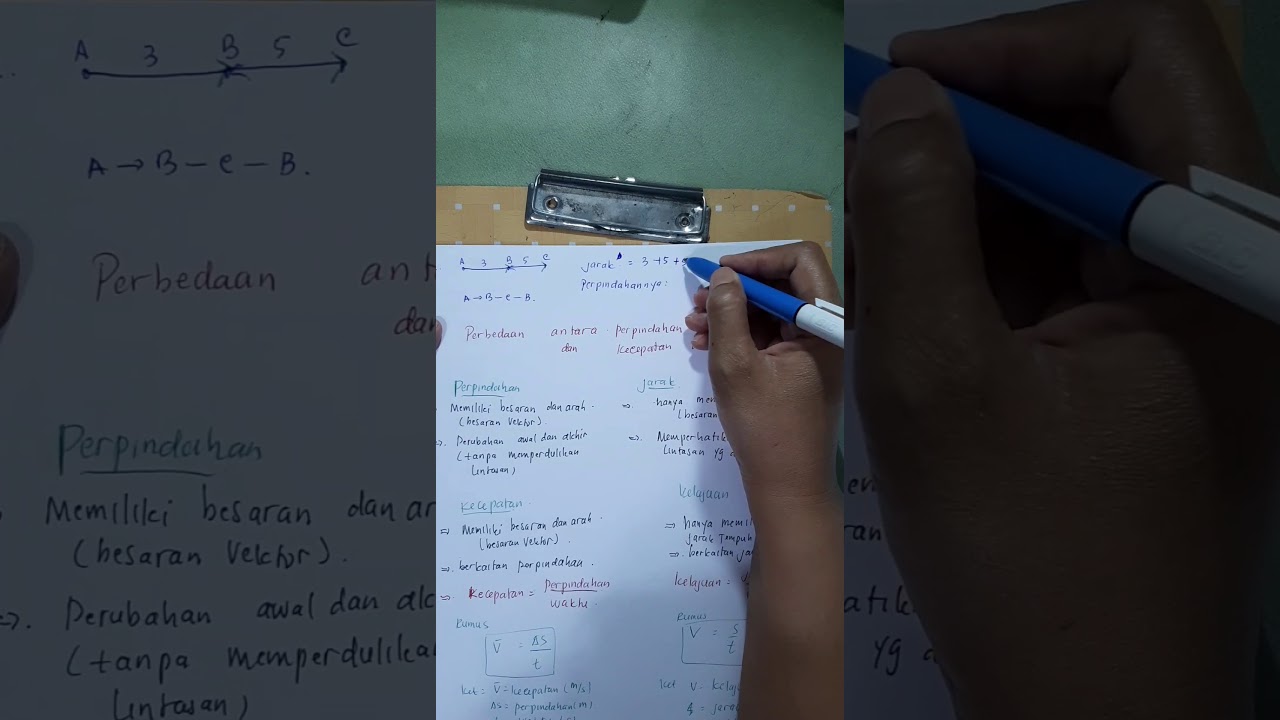 A 3 B 5 C
jarak = 3 + 5 +
Perpindahannya:
A → B - C - B.
Perbedaan antara perpindahan
dan kecepatan
Perpindahan
Memiliki besaran dan arah.
(besaran vektor).
⇒. Perubahan awal dan akhir
(tanpa memperdulikan
lintasan)
jarak
⇒. hanya
(besaran
⇒. Memperhatik
lintasan yg
kecepatan.
⇒ Memiliki besaran dan arah.
(besaran vektor).
⇒. berkaitan perpindahan.
⇒. kecepatan = Perpindahan
waktu.
Rumus
V̄ = Δs
t
ket = V̄ = kecepatan (m/s)
Δs = perpindahan (m)
kelajuan
⇒ hanya memili
jarak Tempuh
⇒. berkaitan
kelajuan =
Rumus
V = s
t
ket V =
= jarak